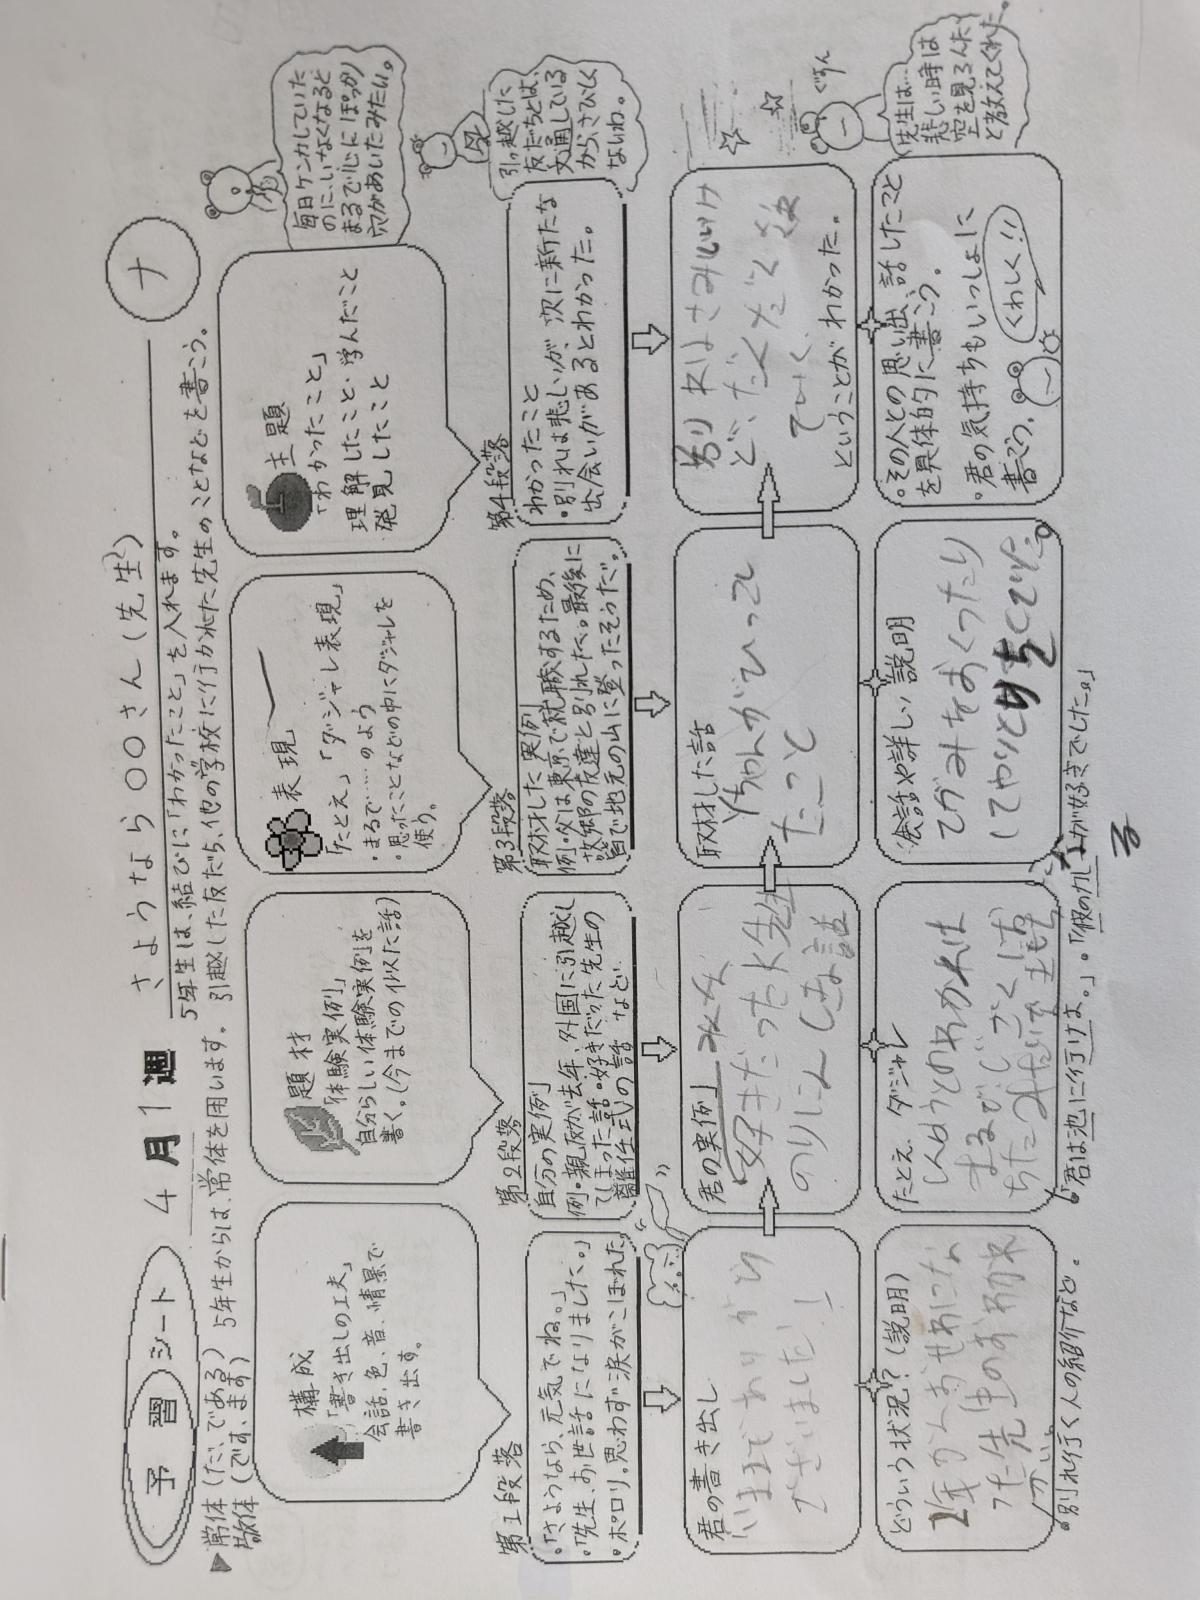 予習シート
4月1週
さようなら○○さん(先生)
ナ
▶常体(だ、である) 5年生からは、常体を用います。
敬体(です、ます)
5年生は、結びに「わかったこと」を入れます。
引越した友だち、他の学校に行かれた先生のことなどを書こう。
構成
「書き出しの工夫」
会話、色、音、情景で
書き出す。
題材
「体験実例」
自分らしい体験実例を
書く。(今までの似た話)
表現
「たとえ」「ダジャレ表現」
・まるで……のよう
・思ったことなどの中にダジャレを
使う。
主題
「わかったこと」
理解したこと・学んだこと
発見したこと
毎日ケンカしていた
のに、いなくなると
まるで心にぽっかり
穴があいたみたい。
第1段落
・「さようなら、元気でね。」
・「先生、お世話になりました。」
・ポロリ。思わず涙がこぼれた
第2段落
自分の実例
例・親友が去年、外国に引越し
てしまった話・好きだった先生の
離任式の話 など
第3段落
取材した実例
例・父は東京で就職するため、
故郷の友達と別れた。最後に
皆で地元の山に登ったそうだ。
第4段落
わかったこと
・別れは悲しいが、次に新たな
出会いがあるとわかった。
引っ越した
友だちとは、
文通している
から、さびしく
ないわ。
君の書き出し
いままでありがとう
ございました!
君の実例
好きだった先生
のりにんしきの話
取材した話
Yちゃんがひっこし
たこと
別れはさみしいけ
ど、だんだんと
ということがわかった。
ぐすん
どういう状況?(説明)
2年かんおせわになっ
た先生のお別れ
かい。
たとえ、ダジャレ
まるで
会話や詳しい説明
てがみをおくったり
してやりとりをしていた。
・その人との思い出、話したこと
を具体的に書こう。
・君の気持ちもいっしょに
書こう。
くわしく!!
先生は…
悲しい時は
空を見るんだ
と教えてくれた。
・別れ行く人の紹介など。
・「君は池に行けよ。」・「彼のカレーが好きでした。」